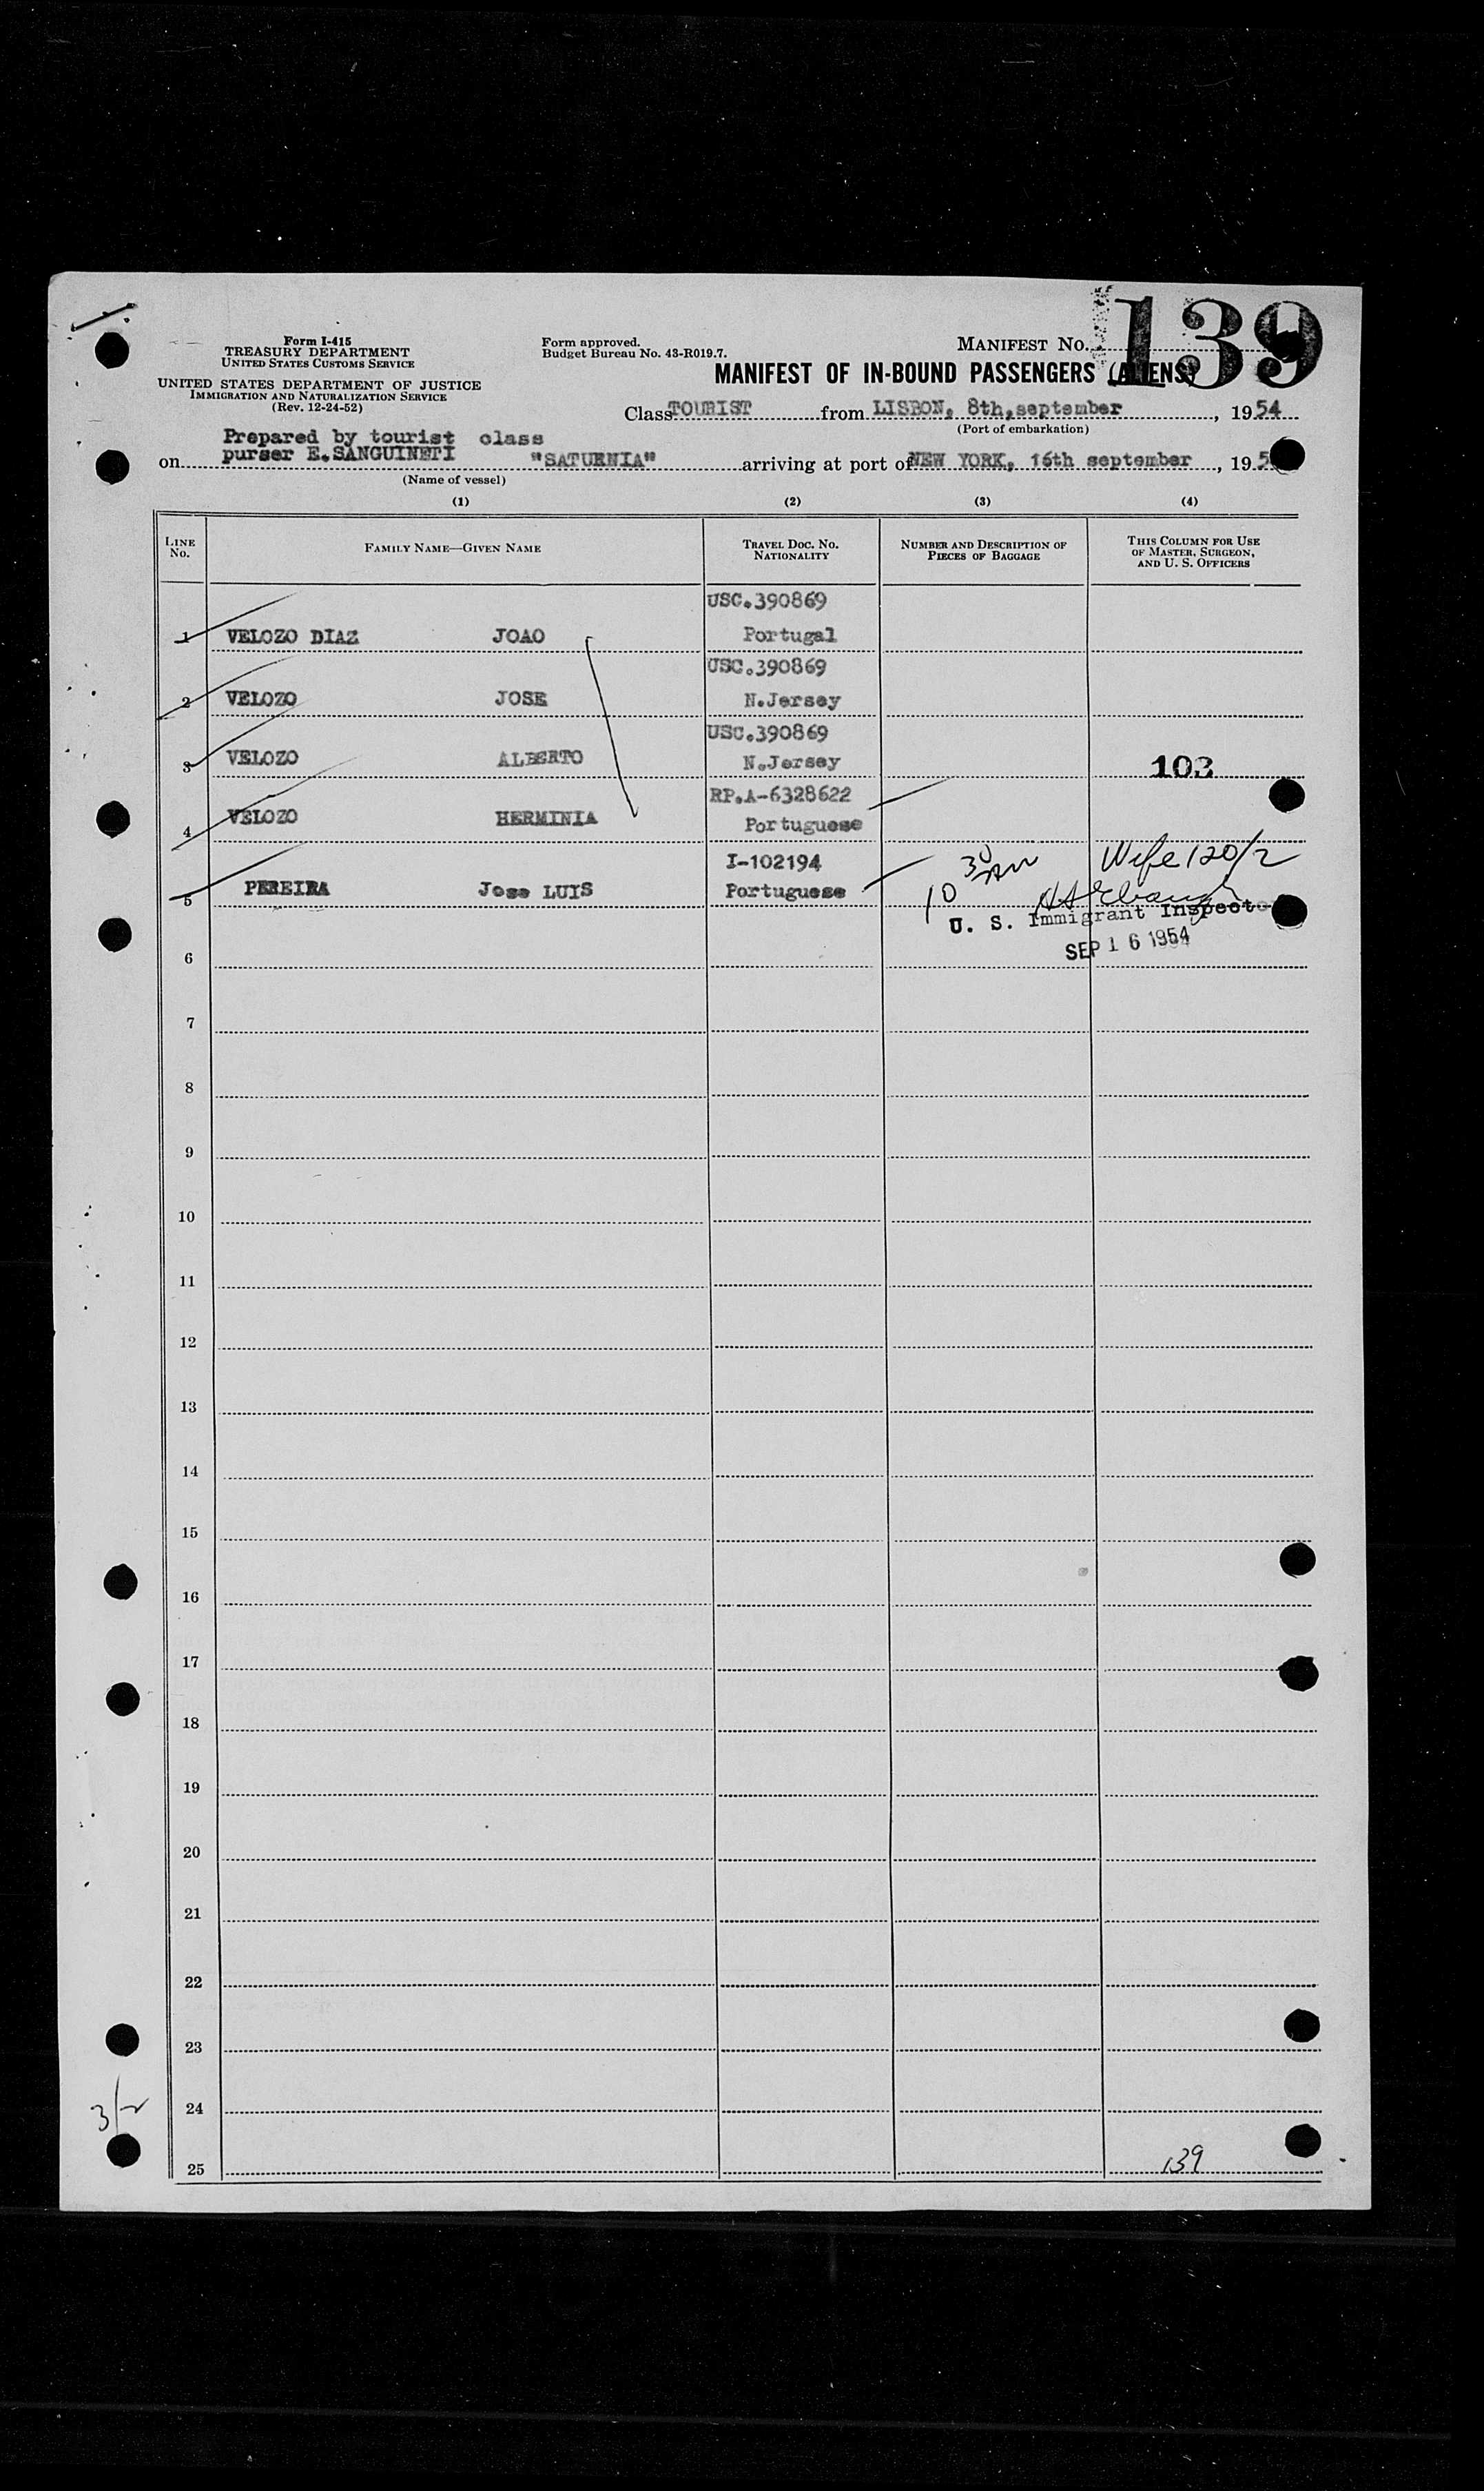 139
Form I-415
TREASURY DEPARTMENT
UNITED STATES CUSTOMS SERVICE
UNITED STATES DEPARTMENT OF JUSTICE
IMMIGRATION AND NATURALIZATION SERVICE
(Rev. 12-24-52)
Form approved.
Budget Bureau No. 43-R019.7.
MANIFEST NO.
MANIFEST OF IN-BOUND PASSENGERS (ALIENS)
Class TOURIST from LISBON, 8th,september, 1954
(Port of embarkation)
Prepared by tourist class
purser E.SANGUINETI
on "SATURNIA" arriving at port of NEW YORK, 16th september, 195
(Name of vessel)
(1) (2) (3) (4)
LINE No.
FAMILY NAME—GIVEN NAME
TRAVEL DOC. NO. NATIONALITY
NUMBER AND DESCRIPTION OF PIECES OF BAGGAGE
THIS COLUMN FOR USE OF MASTER, SURGEON, AND U. S. OFFICERS
USC.390869
1 VELOZO DIAZ JOAO Portugal
USC.390869
2 VELOZO JOSE N.Jersey
USC.390869
3 VELOZO ALBERTO N.Jersey 103
RP.A-6328622
4 VELOZO HERMINIA Portuguese
I-102194 10 30 AM Wife 120/2
5 PEREIRA Jose LUIS Portuguese
U. S. Immigrant Inspector
SEP 16 1954
6
7
8
9
10
11
12
13
14
15
16
17
18
19
20
21
22
23
24
3/2
25
139